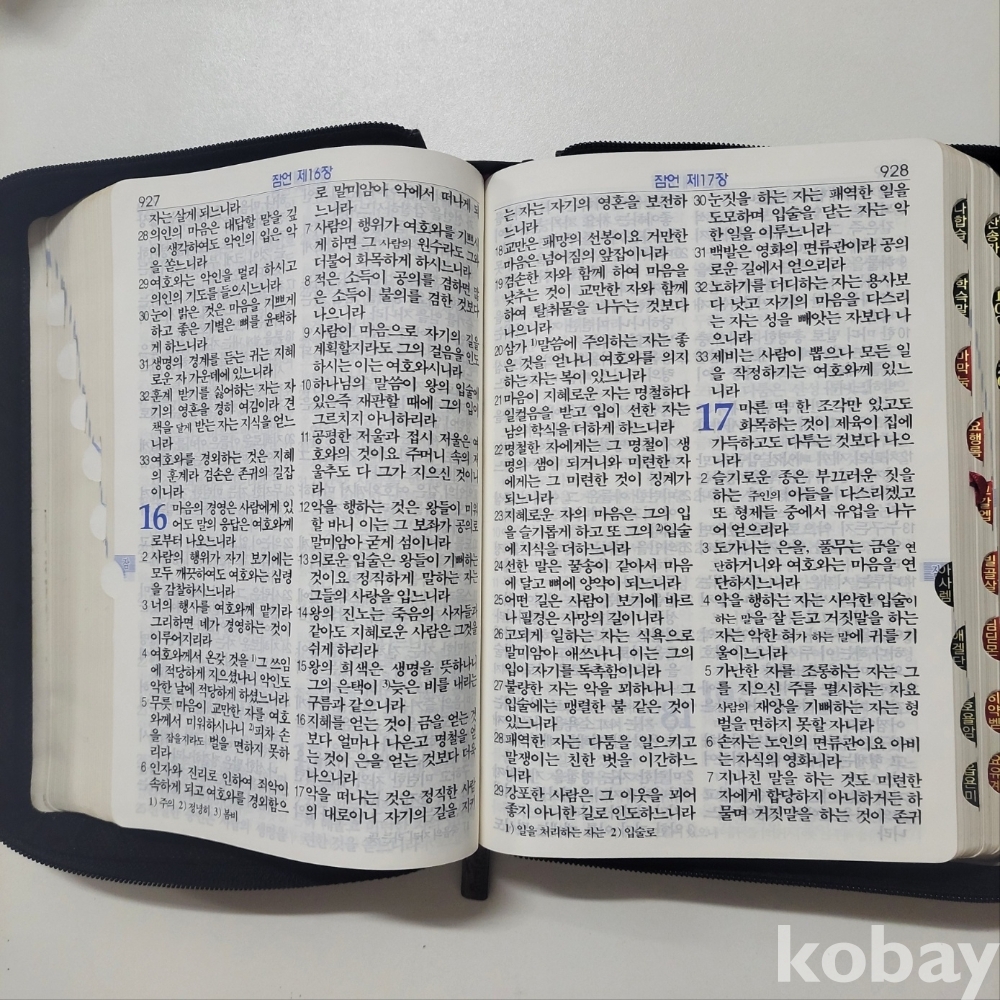 927
잠언 제16장
자는 살게 되느니라
28 의인의 마음은 대답할 말을 깊
이 생각하여도 악인의 입은 악
을 쏟느니라
29 여호와는 악인을 멀리 하시고
의인의 기도를 들으시느니라
30 눈이 밝은 것은 마음을 기쁘게
하고 좋은 기별은 뼈를 윤택하
게 하느니라
31 생명의 경계를 듣는 귀는 지혜
로운 자 가운데에 있느니라
32 훈계 받기를 싫어하는 자는 자
기의 영혼을 경히 여김이라 견
책을 달게 받는 자는 지식을 얻느
니라
33 여호와를 경외하는 것은 지혜
의 훈계라 겸손은 존귀의 길잡
이니라
16 마음의 경영은 사람에게 있
어도 말의 응답은 여호와께
로부터 나오느니라
2 사람의 행위가 자기 보기에는
모두 깨끗하여도 여호와는 심령
을 감찰하시느니라
3 너의 행사를 여호와께 맡기라
그리하면 네가 경영하는 것이
이루어지리라
4 여호와께서 온갖 것을 1)그 쓰임
에 적당하게 지으셨나니 악인도
악한 날에 적당하게 하셨느니라
5 무릇 마음이 교만한 자를 여호
와께서 미워하시나니 2)피차 손
을 잡을지라도 벌을 면하지 못하
리라
6 인자와 진리로 인하여 죄악이
속하게 되고 여호와를 경외함으
1) 주의 2) 정녕히 3) 봄비
로 말미암아 악에서 떠나게 되
느니라
7 사람의 행위가 여호와를 기쁘시
게 하면 그 사람의 원수라도 그와
더불어 화목하게 하시느니라
8 적은 소득이 공의를 겸하면 많
은 소득이 불의를 겸한 것보다
나으니라
9 사람이 마음으로 자기의 길을
계획할지라도 그의 걸음을 인도
하시는 이는 여호와시니라
10 하나님의 말씀이 왕의 입술에
있은즉 재판할 때에 그의 입이
그르치지 아니하리라
11 공평한 저울과 접시 저울은 여
호와의 것이요 주머니 속의 저
울추도 다 그가 지으신 것이니
라
12 악을 행하는 것은 왕들이 미워
할 바니 이는 그 보좌가 공의로
말미암아 굳게 섬이니라
13 의로운 입술은 왕들이 기뻐하는
것이요 정직하게 말하는 자는
그들의 사랑을 입느니라
14 왕의 진노는 죽음의 사자들과
같아도 지혜로운 사람은 그것을
쉬게 하리라
15 왕의 희색은 생명을 뜻하나니
그의 은택이 3)늦은 비를 내리는
구름과 같으니라
16 지혜를 얻는 것이 금을 얻는 것
보다 얼마나 나은고 명철을 얻
는 것이 은을 얻는 것보다 더욱
나으니라
17 악을 떠나는 것은 정직한 사람
의 대로이니 자기의 길을 지키
잠언 제17장
928
는 자는 자기의 영혼을 보전하
느니라
18 교만은 패망의 선봉이요 거만한
마음은 넘어짐의 앞잡이니라
19 겸손한 자와 함께 하여 마음을
낮추는 것이 교만한 자와 함께
하여 탈취물을 나누는 것보다
나으니라
20 삼가 1)말씀에 주의하는 자는 좋
은 것을 얻나니 여호와를 의지
하는 자는 복이 있느니라
21 마음이 지혜로운 자는 명철하다
일컬음을 받고 입이 선한 자는
남의 학식을 더하게 하느니라
22 명철한 자에게는 그 명철이 생
명의 샘이 되거니와 미련한 자
에게는 그 미련한 것이 징계가
되느니라
23 지혜로운 자의 마음은 그의 입
을 슬기롭게 하고 또 그의 2)입술
에 지식을 더하느니라
24 선한 말은 꿀송이 같아서 마음
에 달고 뼈에 양약이 되느니라
25 어떤 길은 사람이 보기에 바르
나 필경은 사망의 길이니라
26 고되게 일하는 자는 식욕으로
말미암아 애쓰나니 이는 그의
입이 자기를 독촉함이니라
27 불량한 자는 악을 꾀하나니 그
입술에는 맹렬한 불 같은 것이
있느니라
28 패역한 자는 다툼을 일으키고
말쟁이는 친한 벗을 이간하느
니라
29 강포한 사람은 그 이웃을 꾀어
좋지 아니한 길로 인도하느니라
1) 일을 처리하는 자는 2) 입술로
30 눈짓을 하는 자는 패역한 일을
도모하며 입술을 닫는 자는 악
한 일을 이루느니라
31 백발은 영화의 면류관이라 공의
로운 길에서 얻으리라
32 노하기를 더디하는 자는 용사보
다 낫고 자기의 마음을 다스리
는 자는 성을 빼앗는 자보다 나
으니라
33 제비는 사람이 뽑으나 모든 일
을 작정하기는 여호와께 있느
니라
17 마른 떡 한 조각만 있고도
화목하는 것이 제육이 집에
가득하고도 다투는 것보다 나으
니라
2 슬기로운 종은 부끄러운 짓을
하는 주인의 아들을 다스리겠고
또 형제들 중에서 유업을 나누
어 얻으리라
3 도가니는 은을, 풀무는 금을 연
단하거니와 여호와는 마음을 연
단하시느니라
4 악을 행하는 자는 사악한 입술이
하는 말을 잘 듣고 거짓말을 하는
자는 악한 혀가 하는 말에 귀를 기
울이느니라
5 가난한 자를 조롱하는 자는 그
를 지으신 주를 멸시하는 자요
사람의 재앙을 기뻐하는 자는 형
벌을 면하지 못할 자니라
6 손자는 노인의 면류관이요 아비
는 자식의 영화니라
7 지나친 말을 하는 것도 미련한
자에게 합당하지 아니하거든 하
물며 거짓말을 하는 것이 존귀
나합습
학슥말
마막눅
요행롬
갈엡
빌골살
딤딛몬
히약벧
아사렘
애겔단
호욜암
kobay